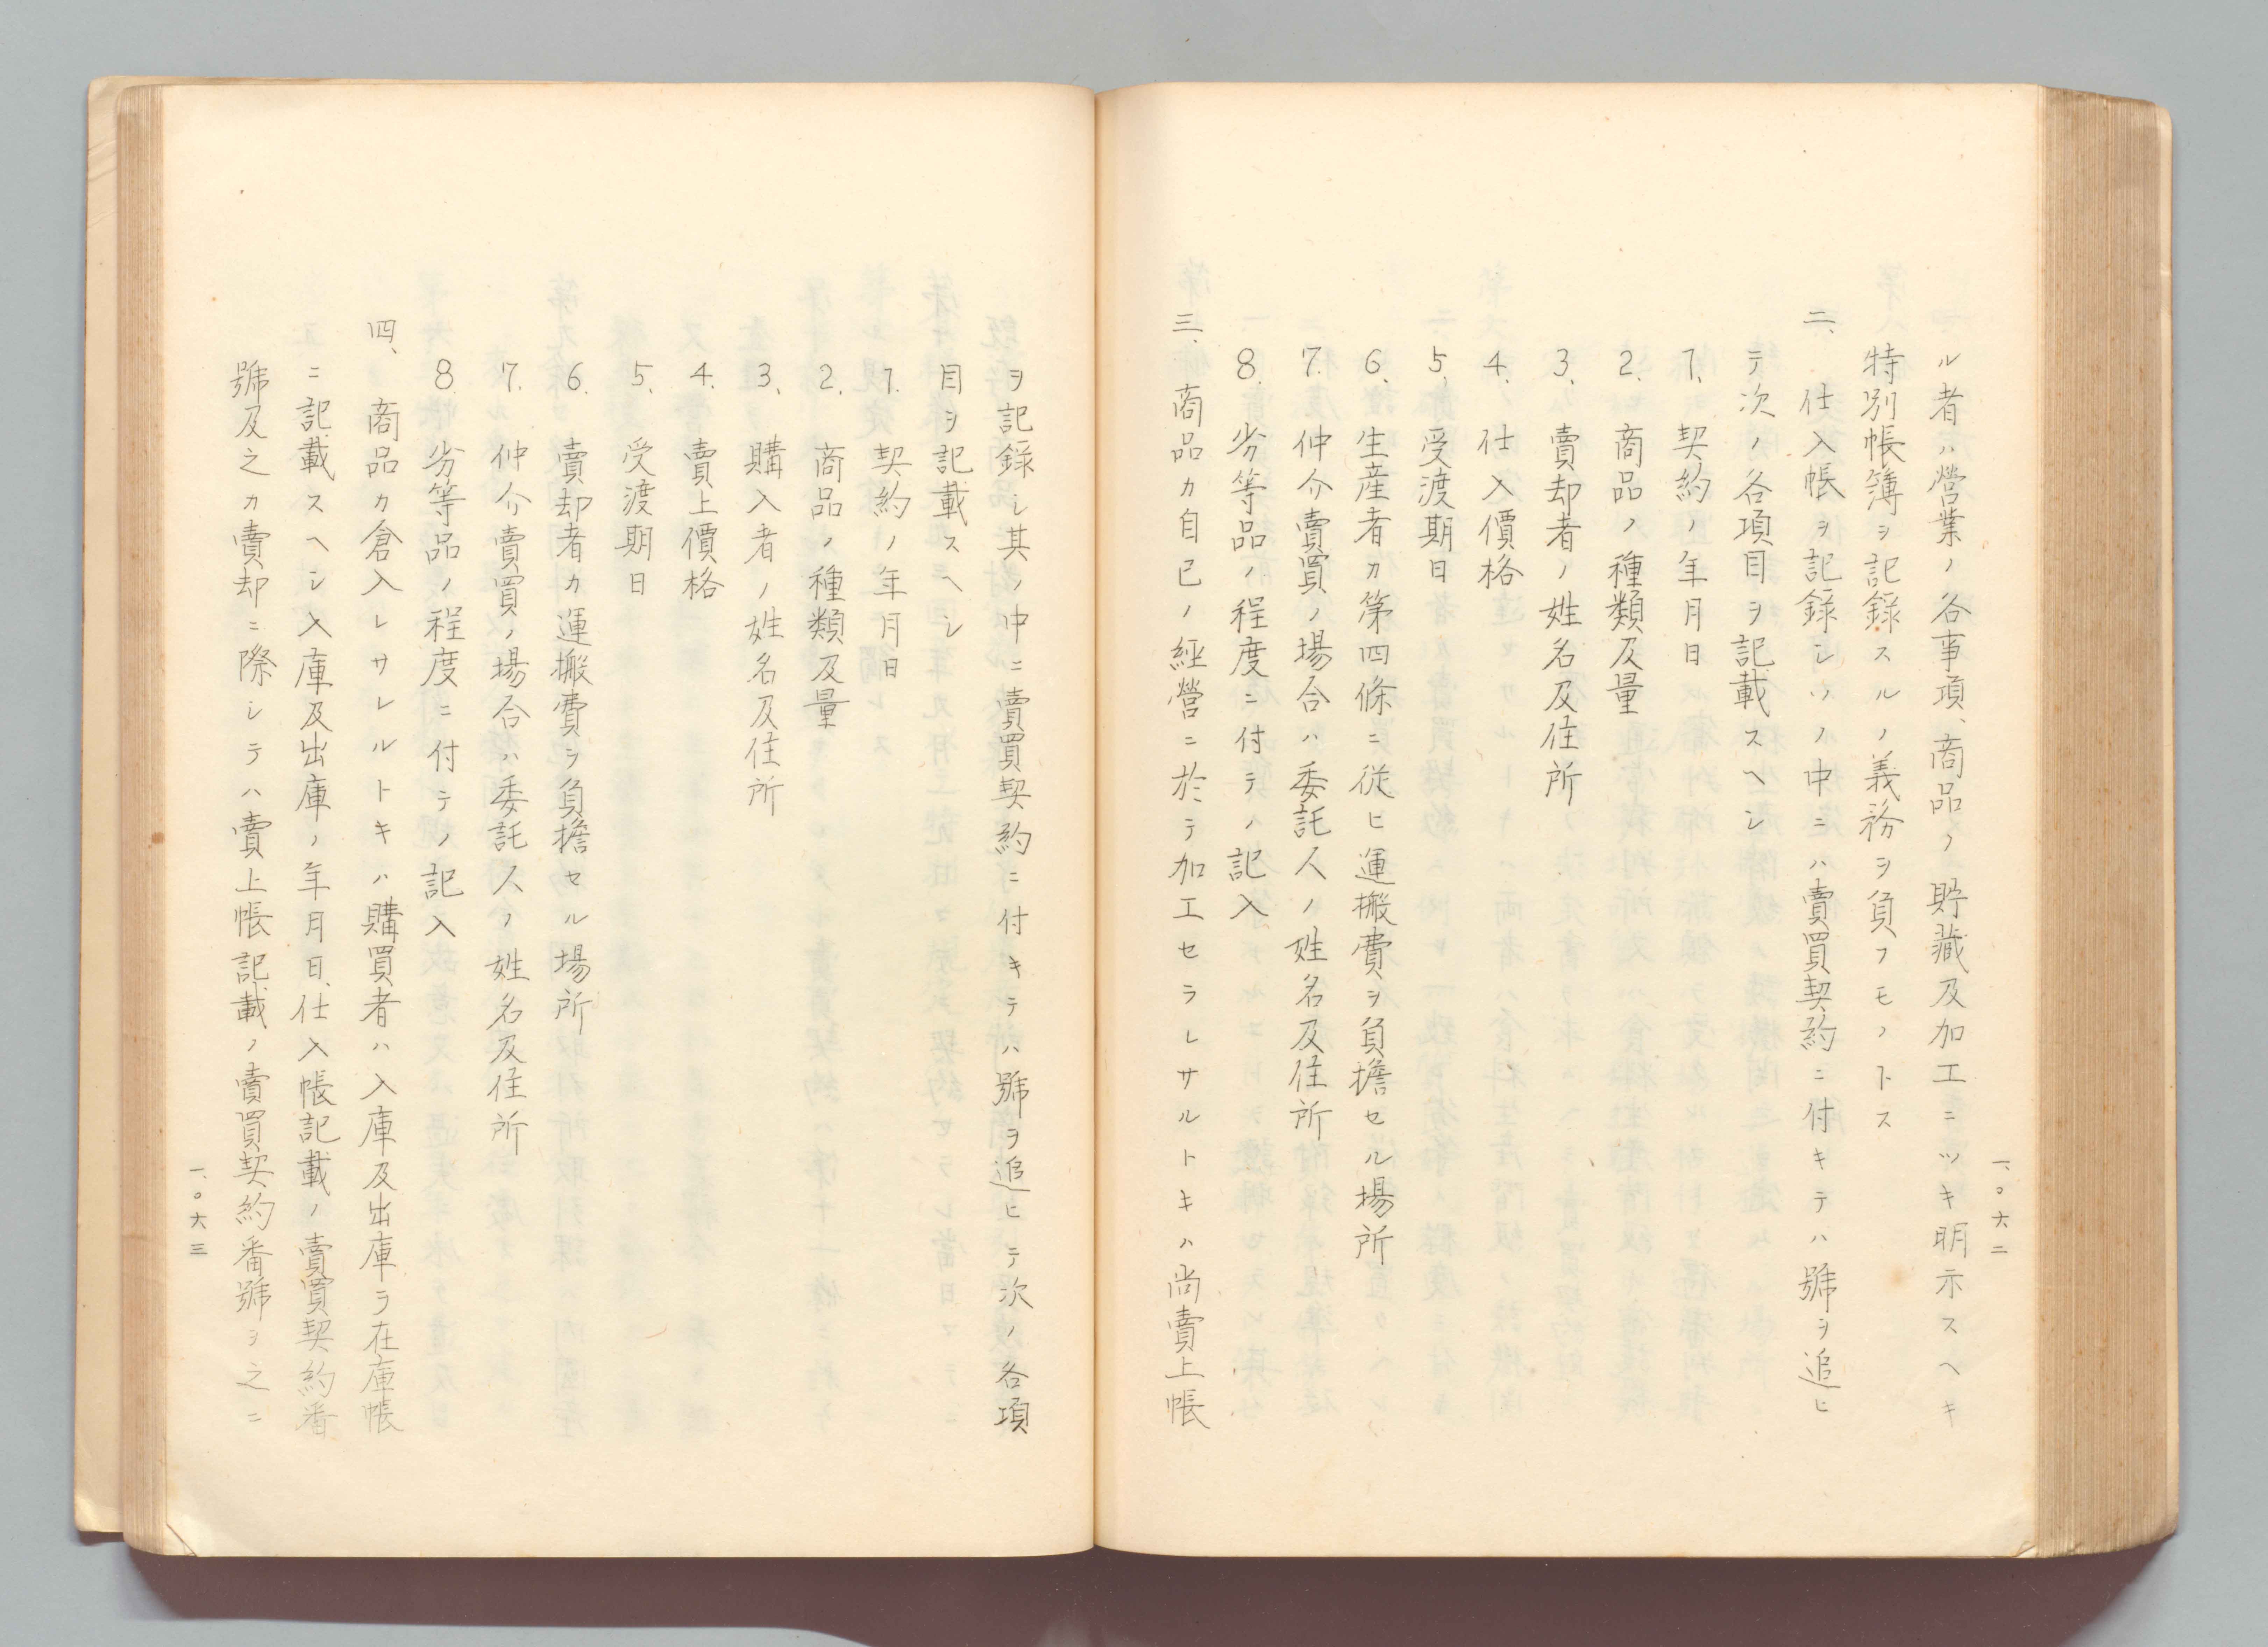 ル者ハ營業ノ各事項、商品ノ貯藏及加工ニツキ明示スヘキ
特別帳簿ヲ記錄スルノ義務ヲ負フモノトス
二、仕入帳ヲ記錄シソノ中ニハ賣買契約ニ付キテハ號ヲ追ヒ
テ次ノ各項目ヲ記載スヘシ
1、契約ノ年月日
2、商品ノ種類及量
3、賣却者ノ姓名及住所
4、仕入價格
5、受渡期日
6、生産者カ第四條ニ從ヒ運搬費ヲ負擔セル場所
7、仲介賣買ノ場合ハ委託人ノ姓名及住所
8、劣等品ノ程度ニ付テノ記入
三、商品カ自己ノ經營ニ於テ加工セラレサルトキハ尚賣上帳
一、〇六二
ヲ記錄シ其ノ中ニ賣買契約ニ付キテハ號ヲ追ヒテ次ノ各項
目ヲ記載スヘシ
1、契約ノ年月日
2、商品ノ種類及量
3、購入者ノ姓名及住所
4、賣上價格
5、受渡期日
6、賣却者カ運搬費ヲ負擔セル場所
7、仲介賣買ノ場合ハ委託人ノ姓名及住所
8、劣等品ノ程度ニ付テノ記入
四、商品カ倉入レサレルトキハ購買者ハ入庫及出庫ヲ在庫帳
ニ記載スヘシ入庫及出庫ノ年月日、仕入帳記載ノ賣買契約番
號及之カ賣却ニ際シテハ賣上帳記載ノ賣買契約番號ヲ之ニ
一、〇六三